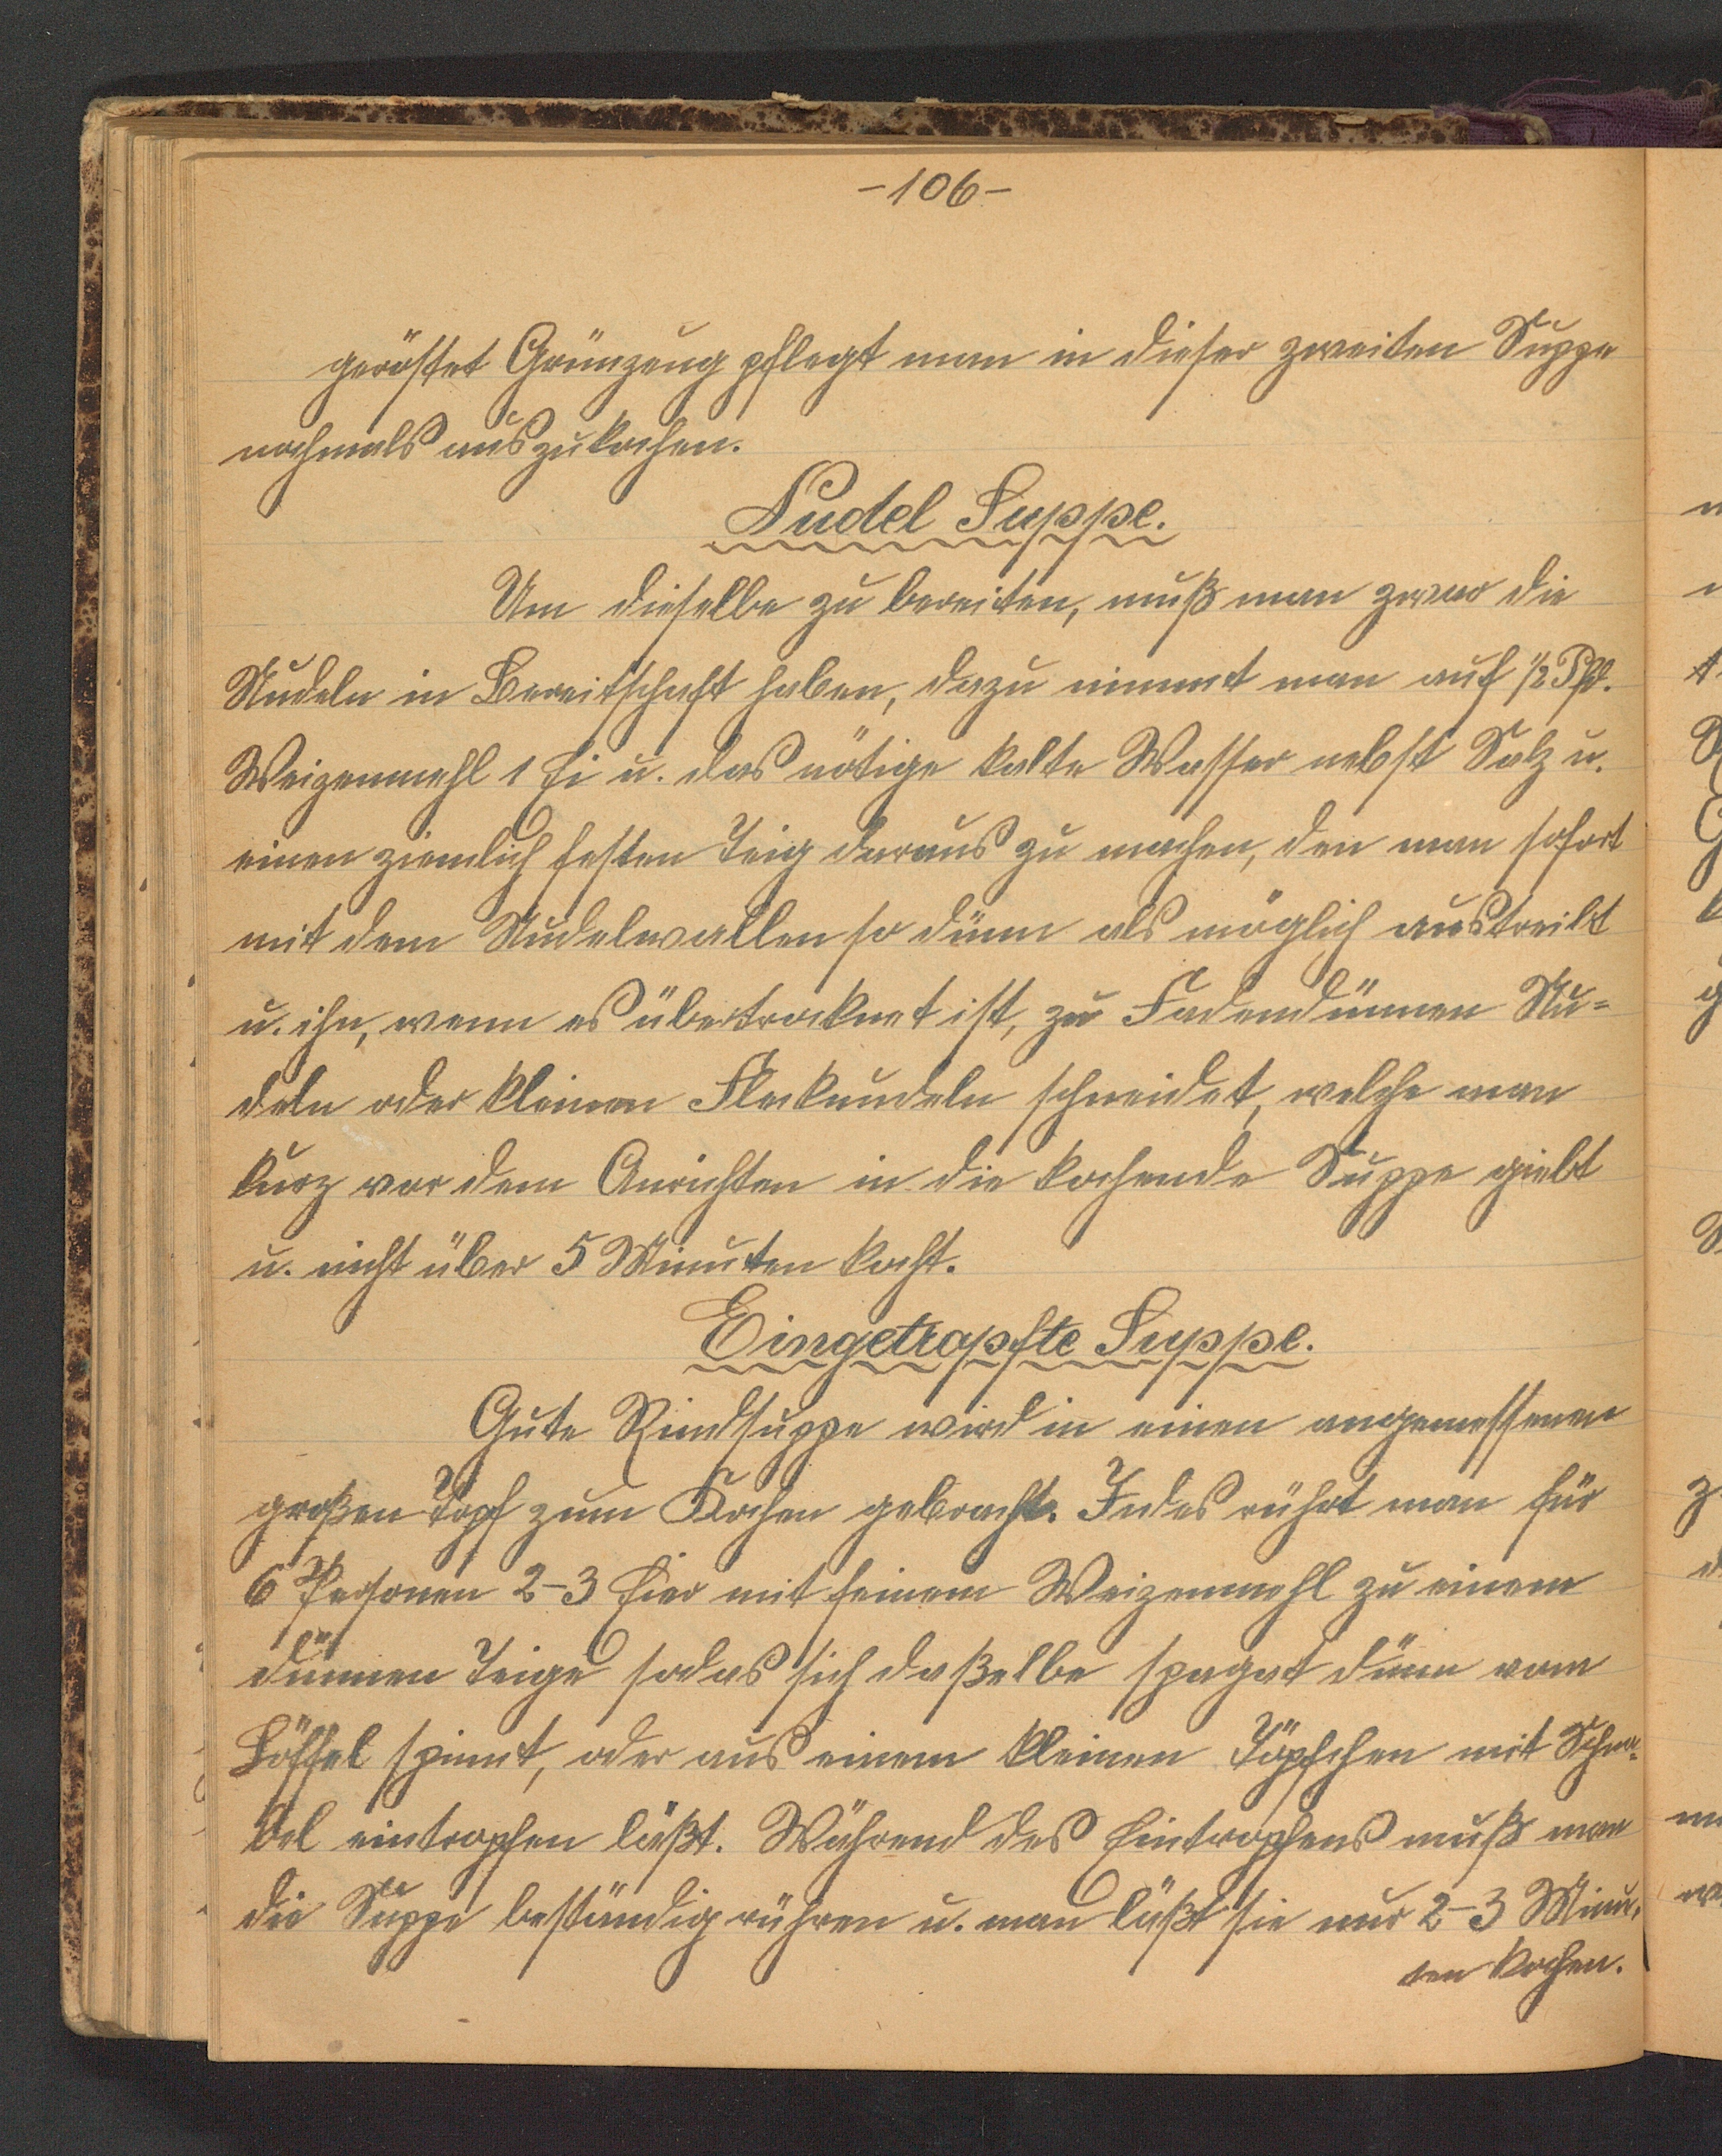 -106-
geröstet Grünzeug pflegt man in dieser zweiten Suppe
nochmals auszukochen.
Nudel Suppe.
Um dieselbe zu bereiten, muß man zwar die
Nudeln in Bereitschaft haben, dazu nimmt man auf ½ Pfd.
Weizenmehl 1 Ei u. das nötige kalte Wasser nebst Salz u.
einen ziemlich festen Teig daraus zu machen, den man sofort
mit dem Nudelwallen so dünn als möglich austreibt
u. ihn, wenn es übertrocknet ist, zu Fadendünnen Nu=
deln oder kleinen Flecknudeln schneidet, welche man
kurz vor dem Anrichten in die kochende Suppe giebt
u. nicht über 5 Minuten kocht.
Eingetropfte Suppe.
Gute Rindsuppe wird in einen angemessenen
großen Topf zum Kochen gebracht. Indes rührt man für
6 Personen 2-3 Eier mit feinem Weizenmehl zu einem
dünnen Teige sodas sich daßelbe spagat dünn vom
Löffel spinnt, oder aus einem kleinen Töpfchen mit Schna-
bel eintropfen läßt. Während des Eintropfens muß man
die Suppe beständig rühren u. man läßt sie nur 2-3 Minu-
ten kochen.